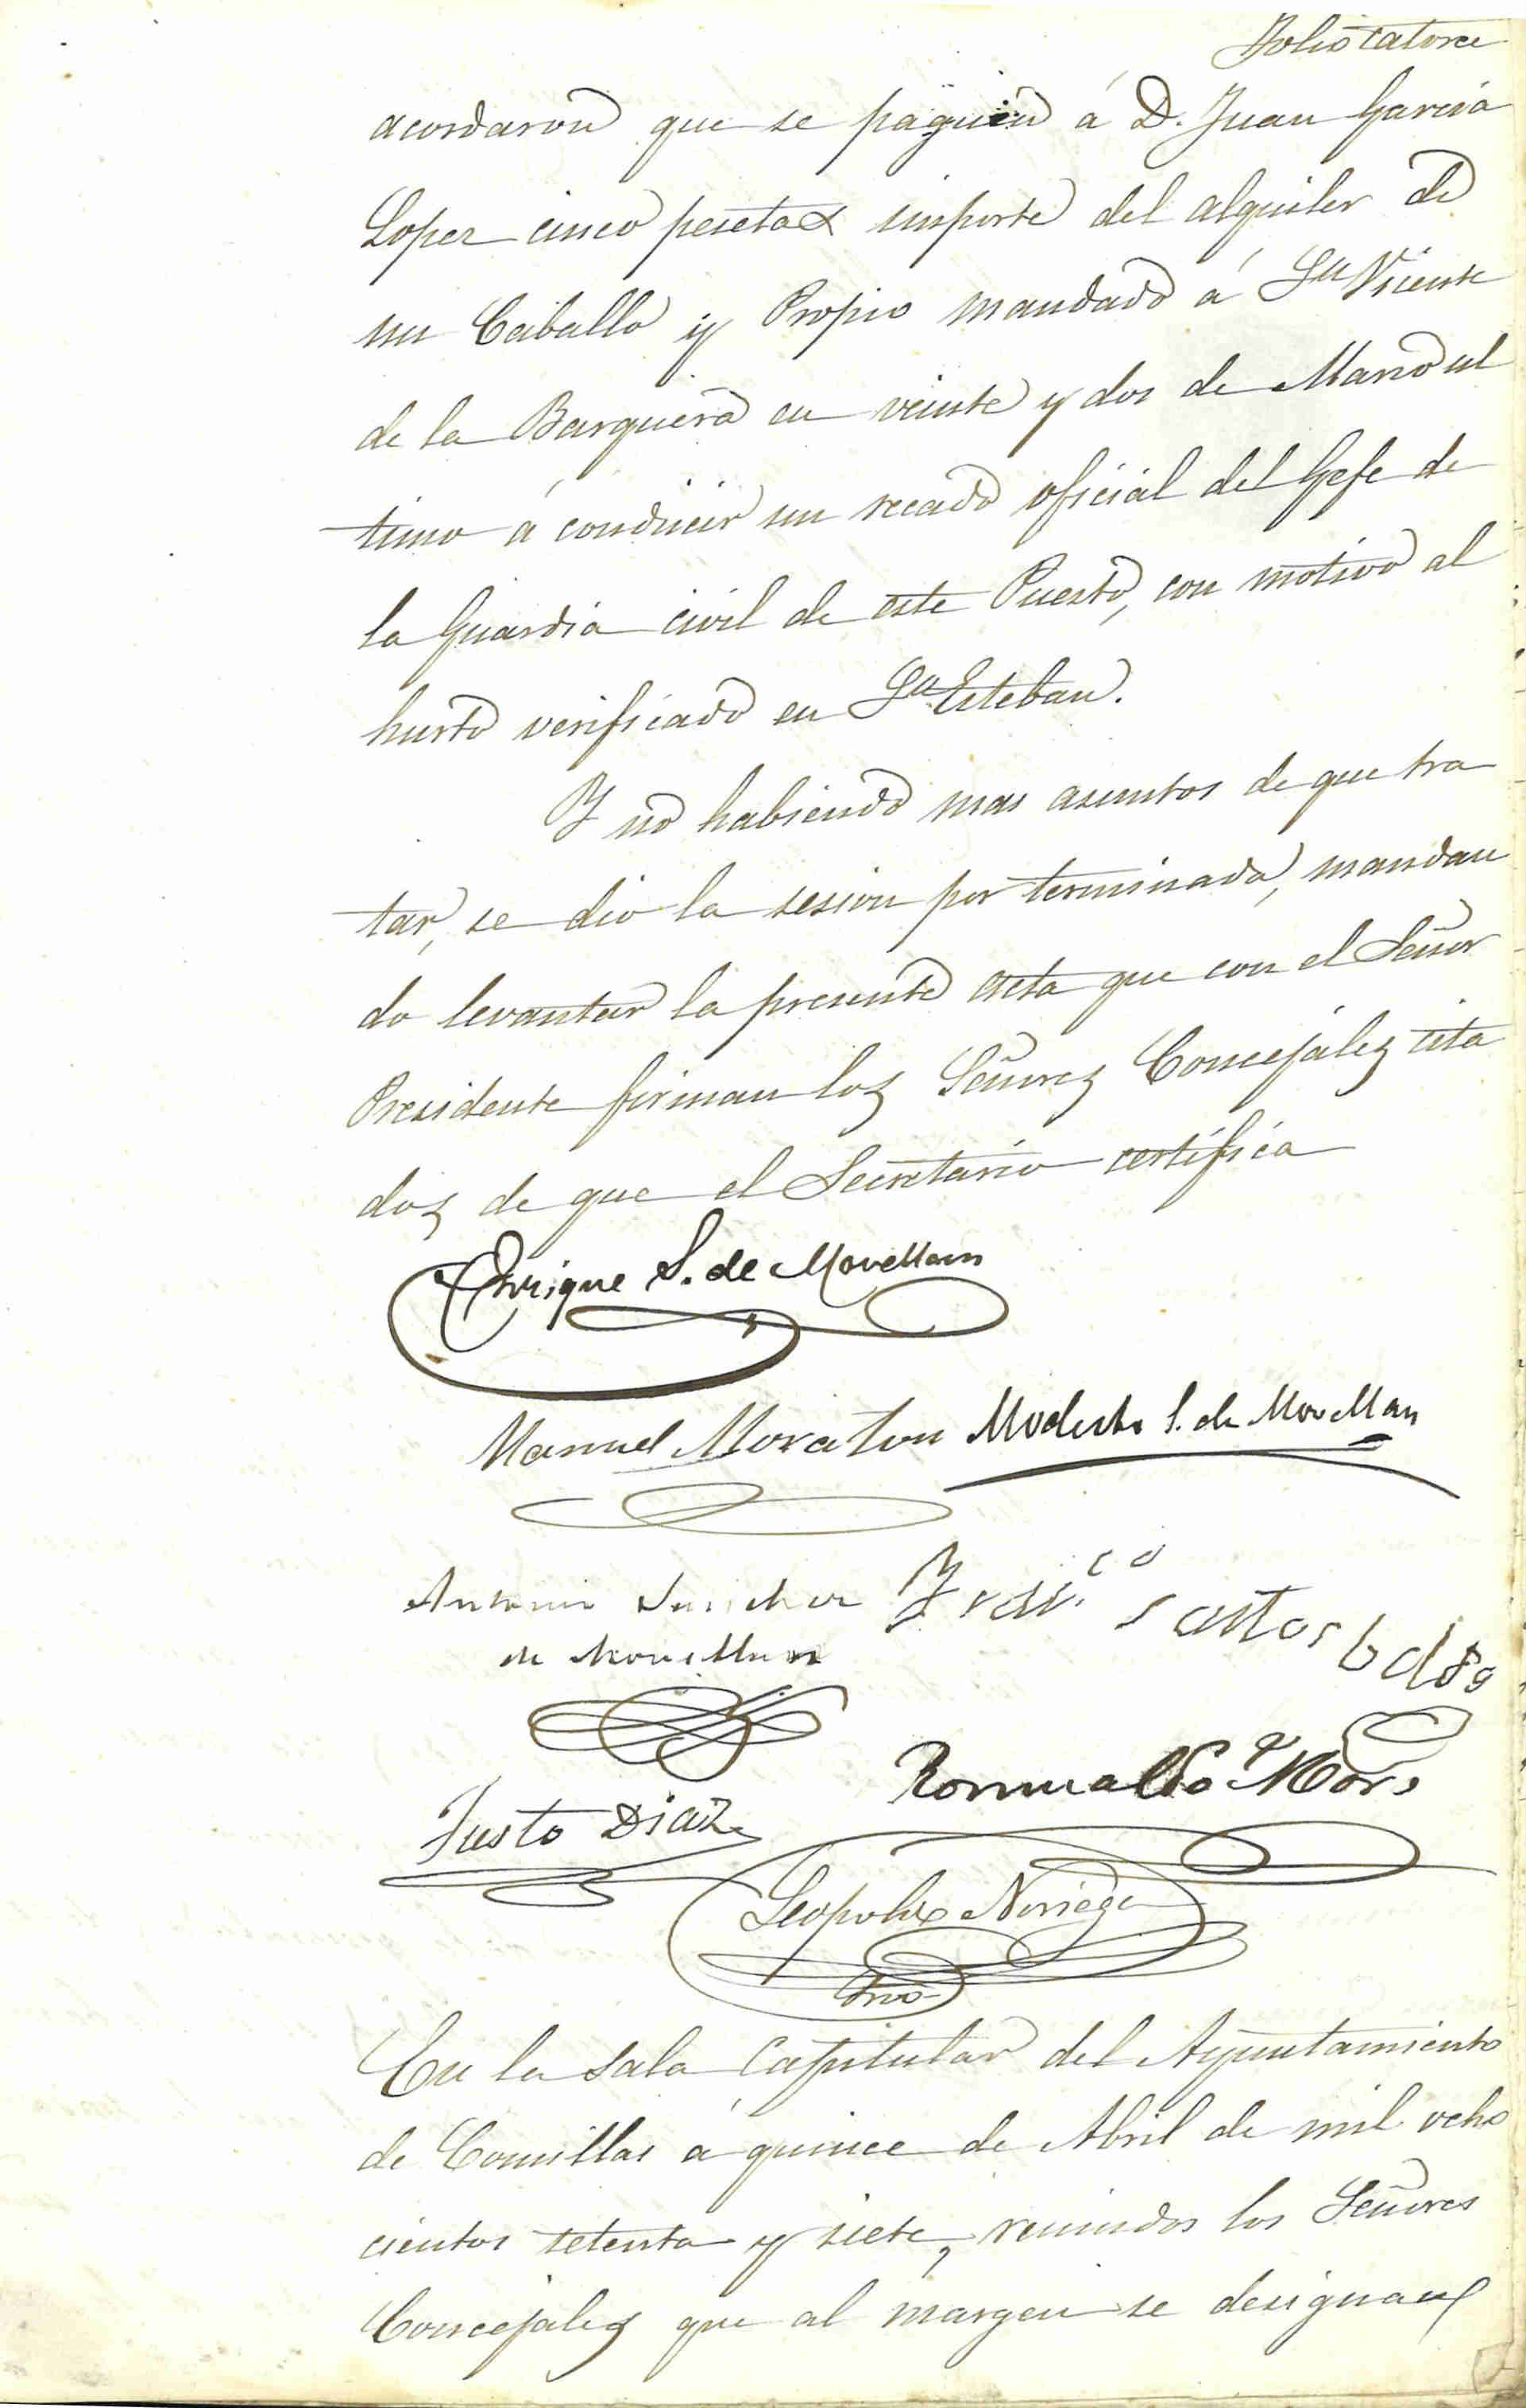 Folio catorce
acordaron que se paguen á D. Juan Garcia
Lopez cinco pesetas importe del alquiler de
un Caballo y Propio mandado á Sn Vicente
de la Barquera en veinte y dos de Marzo ul
timo á conducir un recado oficial del Gefe de
la Guardia civil de este Puesto, con motivo al
hurto verificado en Sn Esteban.
Y no habiendo mas asuntos de que tra
tar, se dio la sesion por terminada, mandan
do levantar la presente acta que con el Señor
Presidente firman los Señores Concejales cita
dos de que el Secretario certifica
Enrique S. de Movellan
Manuel Moraton Modesto S. de Movellan
Antonio Sanchez Franco Santos
de Movellan
Romualdo
Justo Diaz
Leopoldo Noriega
Srio
En la sala Capitular del Ayuntamiento
de Comillas á quince de Abril de mil ocho
cientos setenta y siete, reunidos los Señores
Concejales que al margen se designan